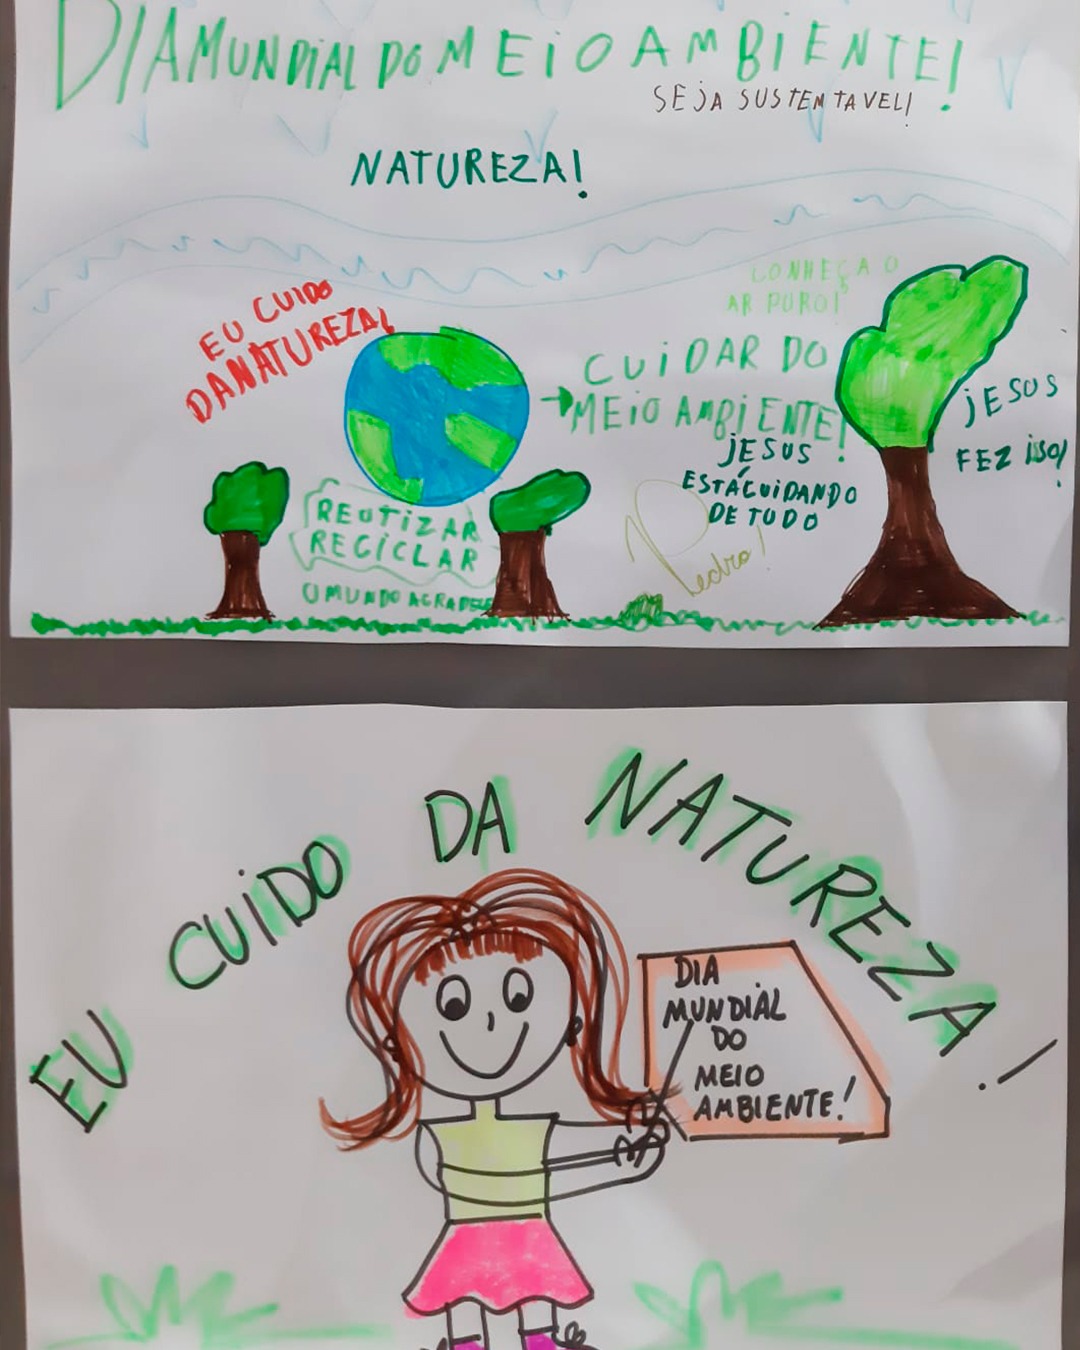 DIA MUNDIAL DO MEIO AMBIENTE!
SEJA SUSTENTAVEL!
NATUREZA!
EU CUIDO
DA NATUREZA!
CONHEÇA O
AR PURO!
CUIDAR DO
MEIO AMBIENTE!
JESUS
ESTÁ CUIDANDO
DE TUDO
JESUS
FEZ ISSO!
REUTIZAR
RECICLAR
O MUNDO AGRADECE
Pedro!
EU CUIDO DA NATUREZA!
DIA
MUNDIAL
DO
MEIO
AMBIENTE!